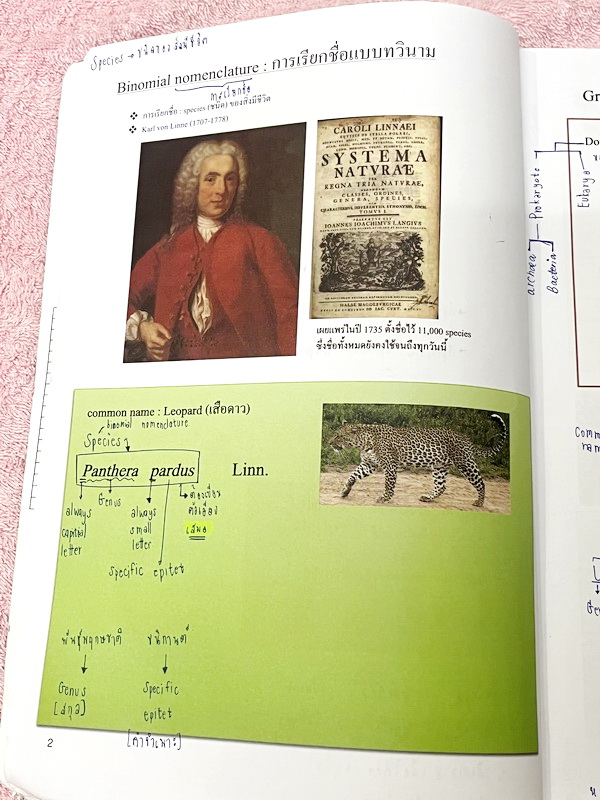 Species → ชนิดของสิ่งมีชีวิต
Binomial nomenclature : การเรียกชื่อแบบทวินาม
การเรียกชื่อ
❖ การเรียกชื่อ : species (ชนิด) ของสิ่งมีชีวิต
❖ Karl von Linne (1707-1778)
CAROLI LINNAEI
SYSTEMA
NATURAE
PER
REGNA TRIA NATURAE,
CLASSES, ORDINES,
GENERA, SPECIES,
TOMUS I.
IOANNES IOACHIMUS LANGIUS
HALAE MAGDEBURGICAE
เผยแพร่ในปี 1735 ตั้งชื่อไว้ 11,000 species
ซึ่งชื่อทั้งหมดยังคงใช้จนถึงทุกวันนี้
common name : Leopard (เสือดาว)
binomial nomenclature
Species
Panthera pardus Linn.
Genus
always
capital
letter
always
small
letter
ต้องเขียน
ตัวเอียง
เสมอ
Specific epitet
พันธุ์พฤกษชาติ
Genus
[สกุล]
ขนิกานต์
Specific
epitet
[คำจำเพาะ]
2
Gr
Do
Prokaryote
Eukarya
archaea
Bacteria
Comm
nam
Ge